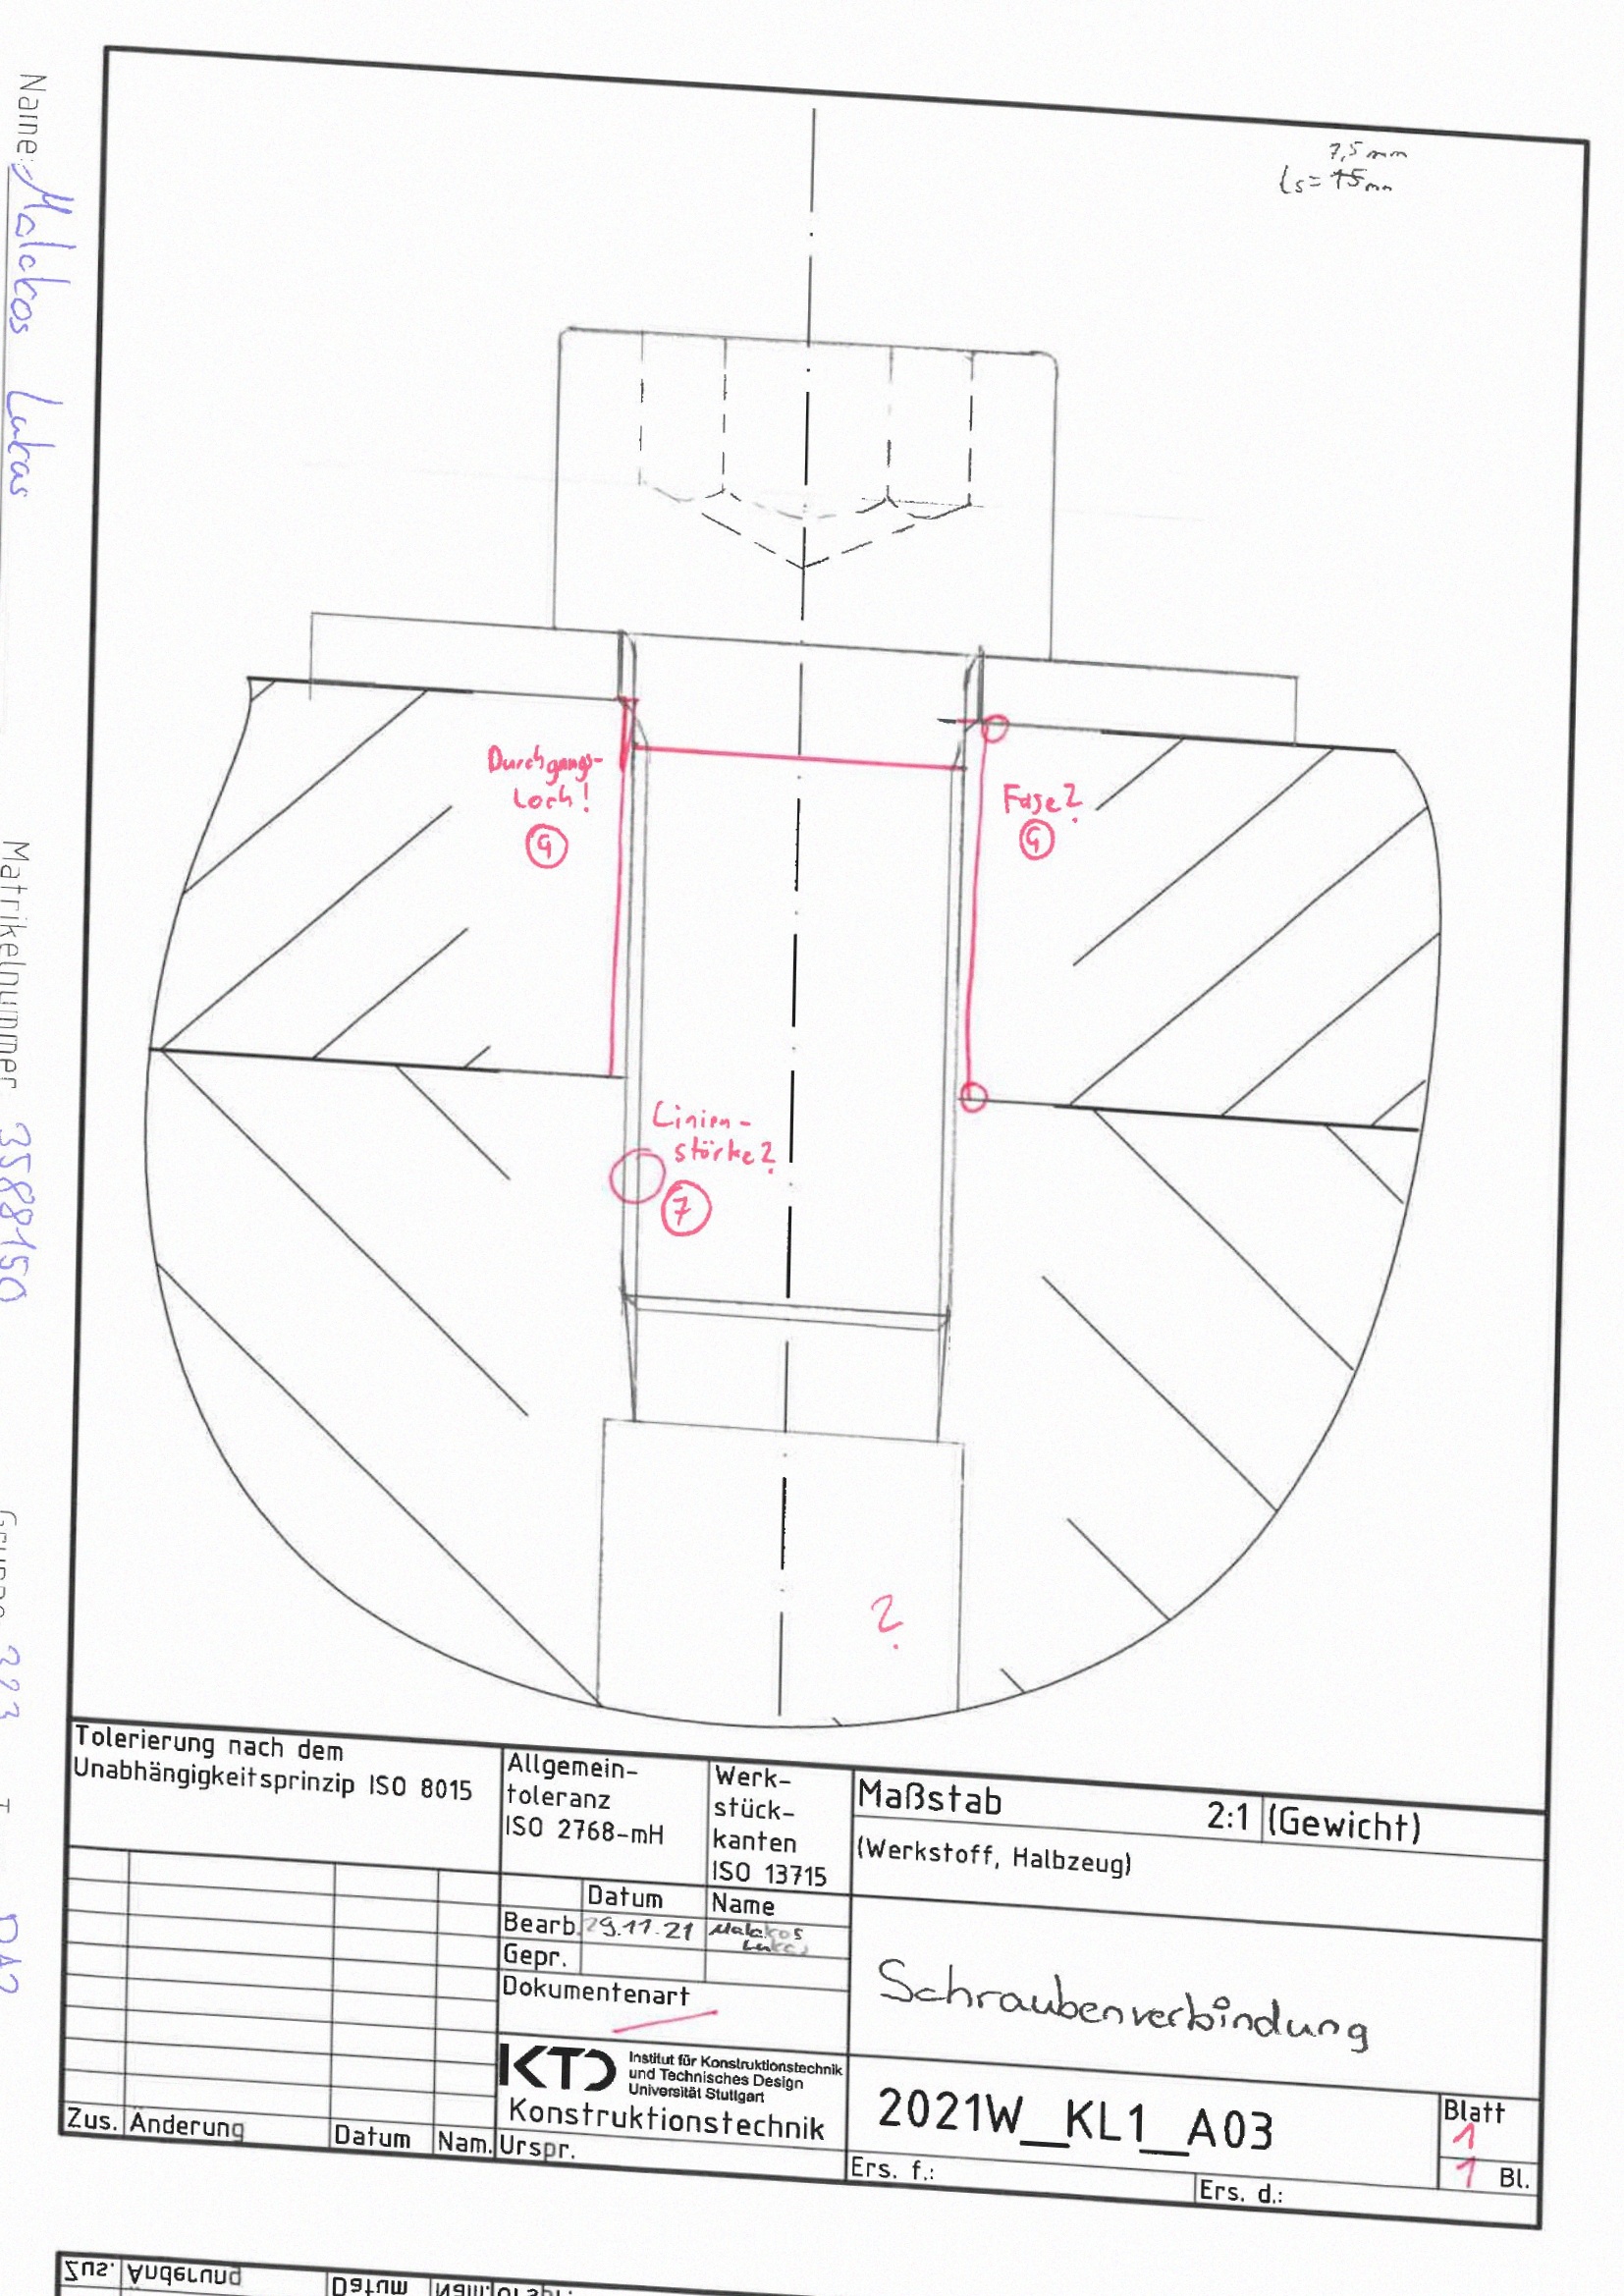 7,5 mm
ls= 15mm
Name: Malakos Lukas
Matrikelnummer 3588150
Durchgangs-
Loch!
9
Fase?
9
Linien-
stärke?
7
?
Tolerierung nach dem
Unabhängigkeitsprinzip ISO 8015
Allgemein-
toleranz
ISO 2768-mH
Werk-
stück-
kanten
ISO 13715
Maßstab 2:1 (Gewicht)
(Werkstoff, Halbzeug)
Datum Name
Bearb. 29.11.21 Malakos
Lukas
Gepr.
Dokumentenart
Schraubenverbindung
KTD Institut für Konstruktionstechnik
und Technisches Design
Universität Stuttgart
Konstruktionstechnik
2021W_KL1_A03
Blatt
1
1 Bl.
Zus. Änderung Datum Nam. Urspr.
Ers. f.: Ers. d.:
Zus. Änderung Datum Nam. Urspr.